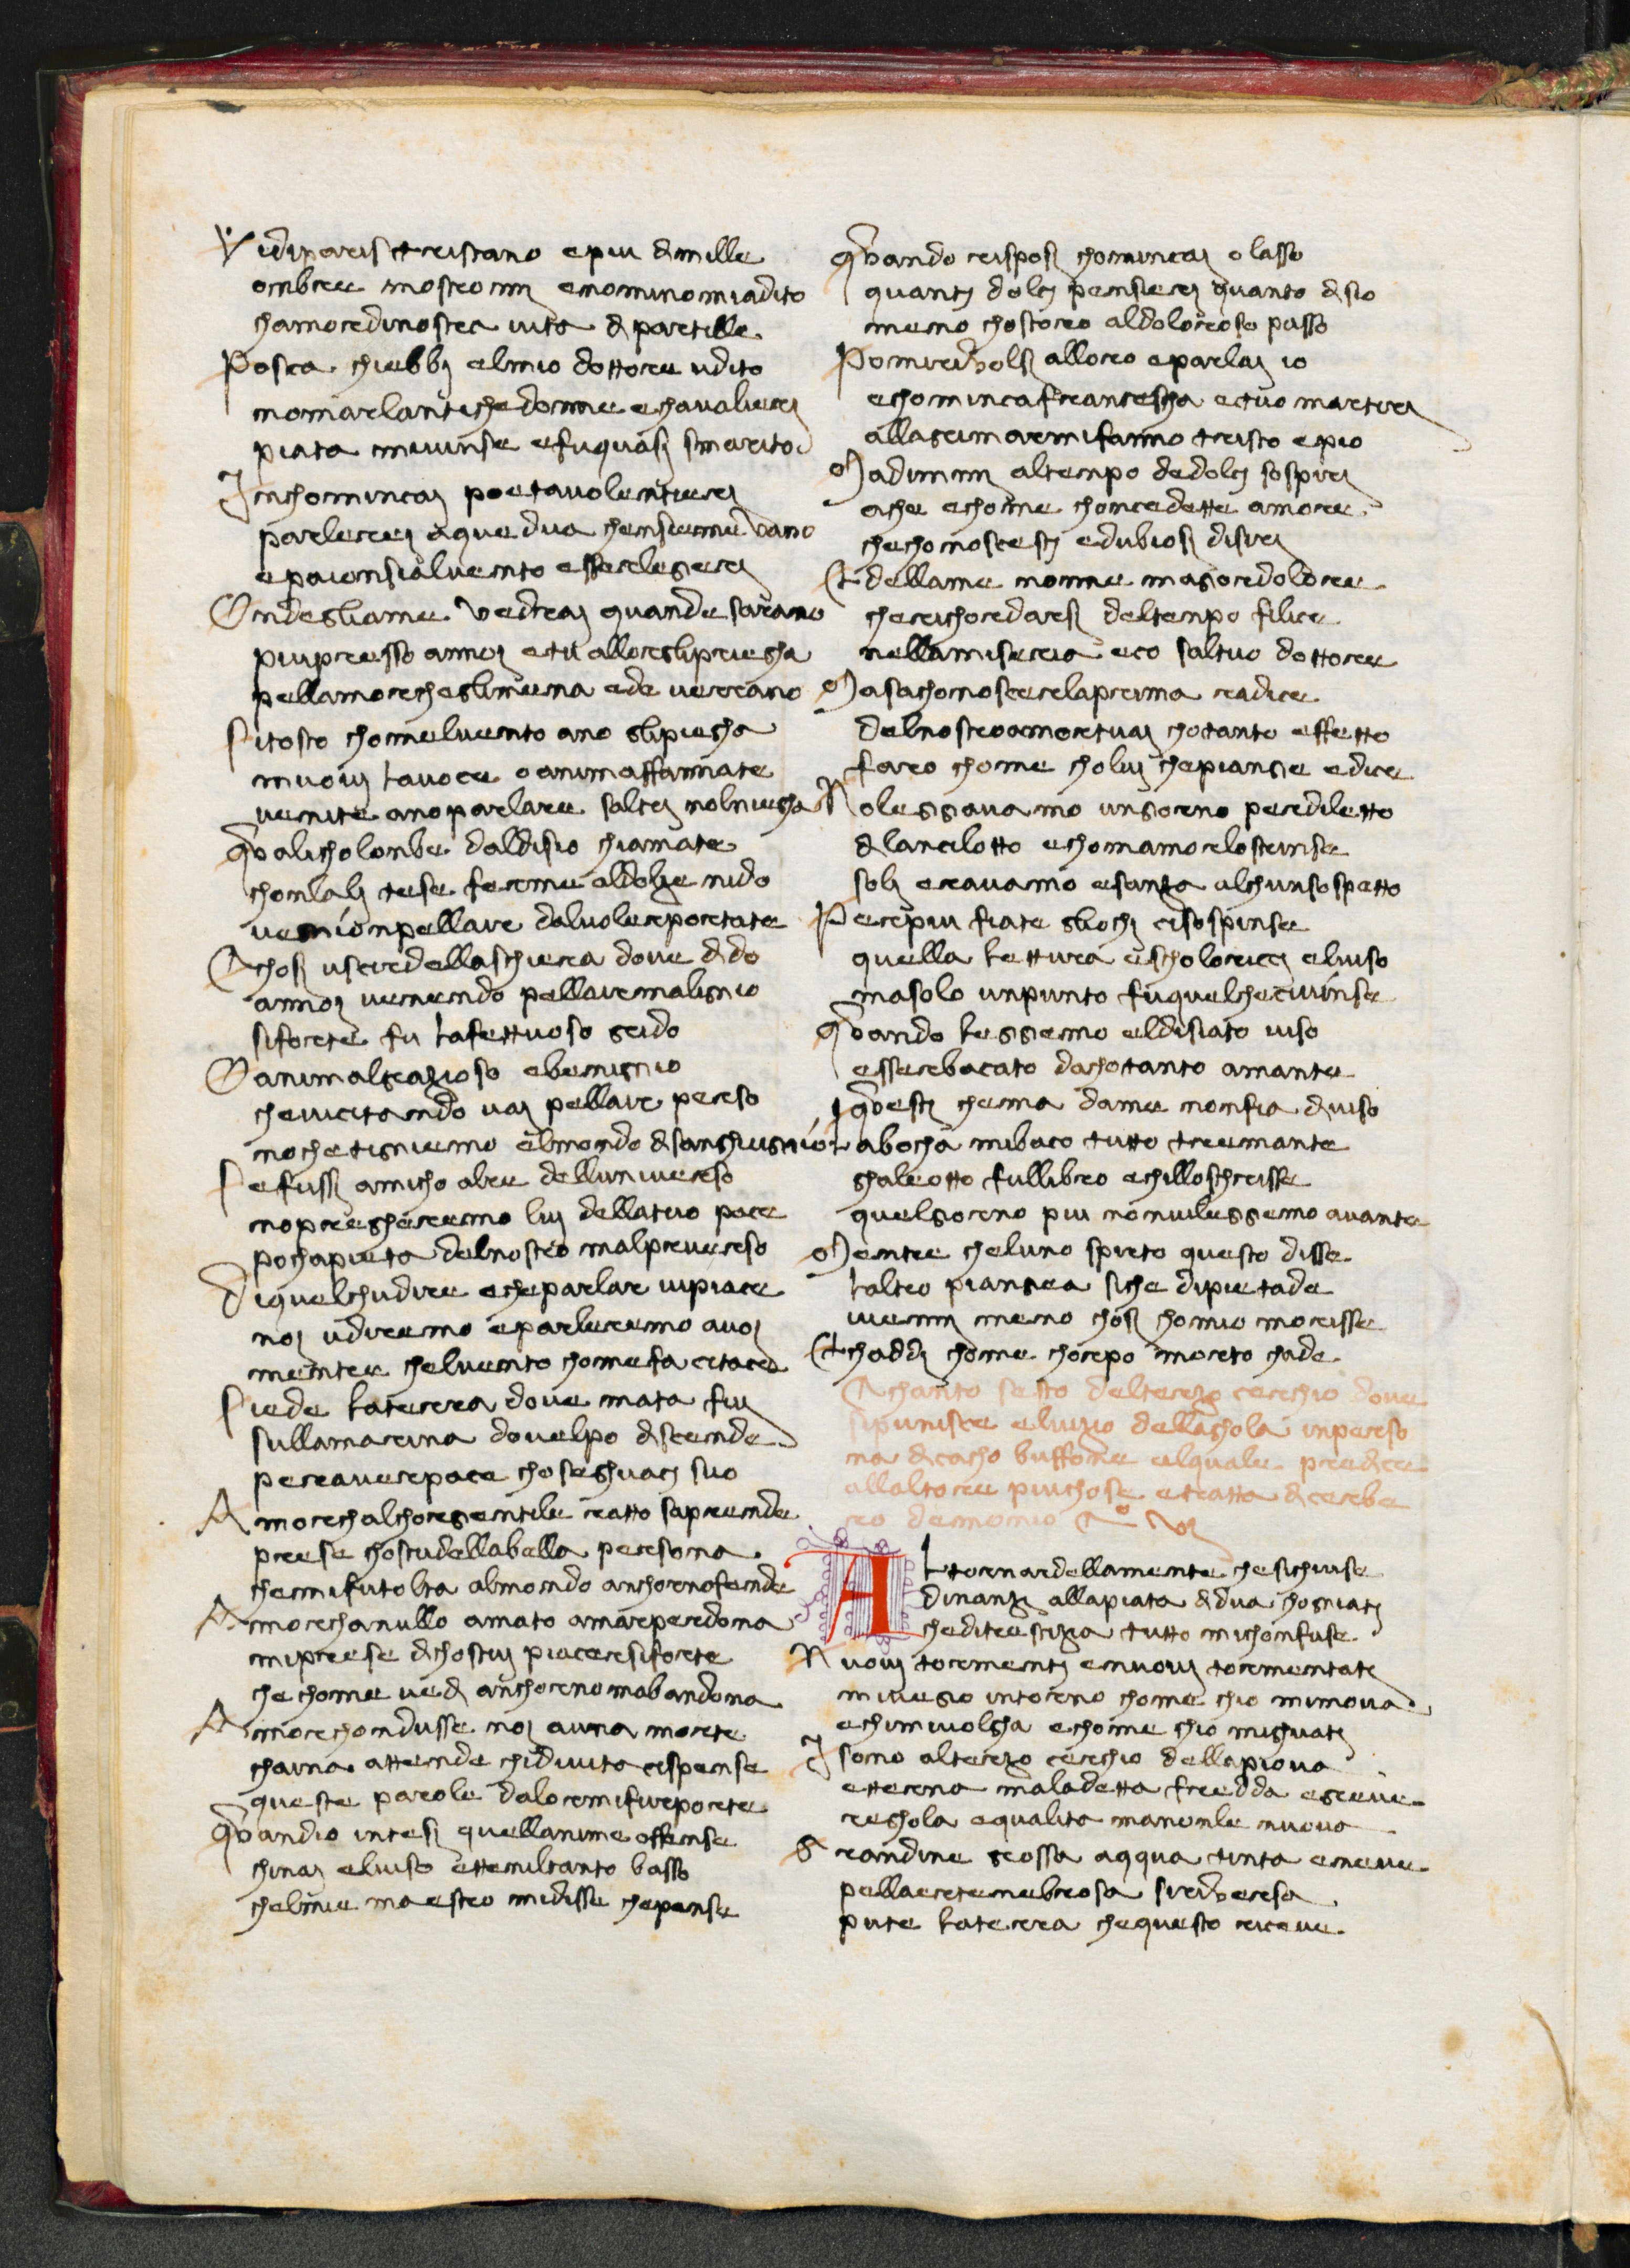 Vidiparis etristano epiu dimille
ombre mostromi enominomiadito
chamoredinostra uita dipartille
Poscia chiebbi elmio dottore udito
nomarlantichedonne echavalieri
pieta mivinse efuquasi smarito
Inchominciai poetavolentieri
parlerei aquedua chensieme vano
epaionsialuento esserlegieri
Ondegliame vedrai quande sarano
piupresso annoi etu alloreglipriegha
pellamorecheglimena ede verrano
Sitosto chomeluento ano glipiegha
muovi lavoce oanimaffannate
venite anoparlare saltri nolniegha
Qualicholonbe daldisio chiamate
chonlali tese ferme aldolze nido
venionpellare dalvolereportate
Chosi uscirdellaschiera dove dido
annoi venendo pellaremalignio
siforte fu lafettuoso grido
Oanimalgrazioso ebenignio
chevicitando vai pellare perso
nochetigniemo elmondo disanghuignio
Sefussi amicho alre delluniverso
nopregheremo lui dellatuo pace
pochapieta delnostro malperverso
Diquelchudire echeparlar vipiace
noi udiremo eparleremo avoi
mentre chelvento chomefa citace
Siede laterra dove nata fui
sullamarina dovelpo discende
peraverepace choseghuaci suo
Amorechalchorgentile ratto saprende
prese chostudellabella persona
chemifutolta almondo anchornofende
Amorechanullo amato amareperdona
miprese dichostui piaceresiforte
che chome vedi anchornomabandona
Amorechondusse noi auna morte
chaina attende chidivita cispense
queste parole dalormifurporte
Quandio intesi quellanime offense
chinai elviso ettenniltanto basso
chelmie maestro midisse chepense
Quando risposi chominciai olasso
quanti dolci pensieri quanto disio
meno chostoro aldoloroso passo
Pomirivolsi alloro eparlai io
echomincia francescha etuo martiri
allagrimarmifanno tristo epio
Madimmi altempo dedolci sospiri
ache echome choncedette amore
chechonosciesti edubiosi disiri
Et dellame nonne magordolore
chericordarsi deltempo filice
nellamiseria eco saltuo dottore
Masachonosciere laprima radice
delnostroamortuai chotanto effetto
faro chome cholui chepiange edice
Noleggiavamo ungiorno perdiletto
dilancilotto echomamorelostrinse
soli eravamo esanza alchunsospetto
Perepiu fiate gliochi cisospinse
quella lettura escholorici elviso
masolo unpunto fuquelchecivinse
Quando leggiemo eldisiato riso
esserebaciato dachotanto amante
questi chema dame nonfia diviso
Labocha mibacio tutto tremante
ghaleotto fullibro echilloschrisse
quelgiorno piu nonvileggiemo avante
Mentre cheluno spirto questo disse
laltro piangiea siche dipietade
ivenni meno chosi chomio morisse
Et chaddi chome chorpo morto chade
Chanto sesto delterzo cierchio dove
sipuniscie elvizio dellaghola inperso
na diciacho buffone elquale predice
allaltore piuchose etratta dicierbe
ro demonio
Altornardellamente chesichiuse
dinanzi allapieta didua chogniati
cheditrestizia tutto michonfuse
Nuovi tormenti ennuovi tormentati
mivegio intorno chome chio mimova
echimivolgha echome chio mighuati
Isono alterzo cierchio dellapiova
etterna maladetta fredda egrieve
reghola equalita manonle nuova
Grandine grossa aqqua tinta eneve
pellaeretenebrosa siriversa
pute laterra chequesto ricieve